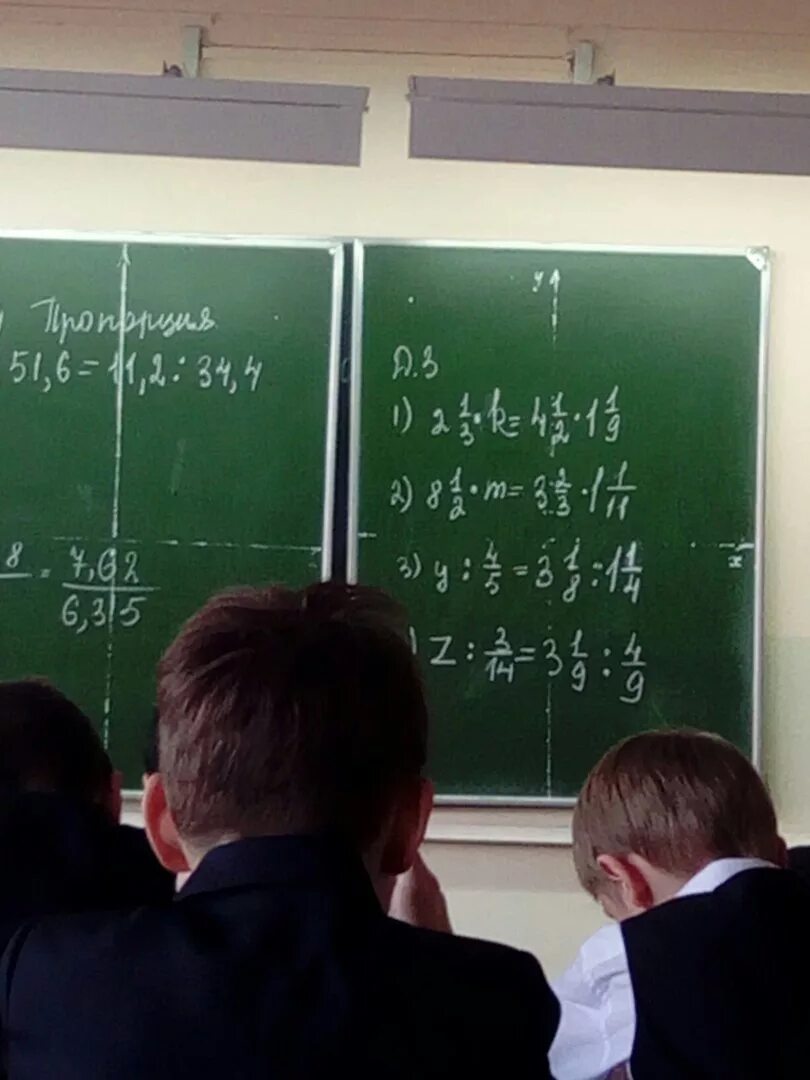 Пропорция
51,6 = 11,2 : 34,4
8 = 7,62
6,315
y
Д.З
1) 2 1/3 · k = 4 1/2 · 1 1/9
2) 8 1/2 · m = 3 2/3 · 1 1/11
3) y : 4/5 = 3 1/8 : 1 1/4
) Z : 3/14 = 3 1/9 : 4/9
x